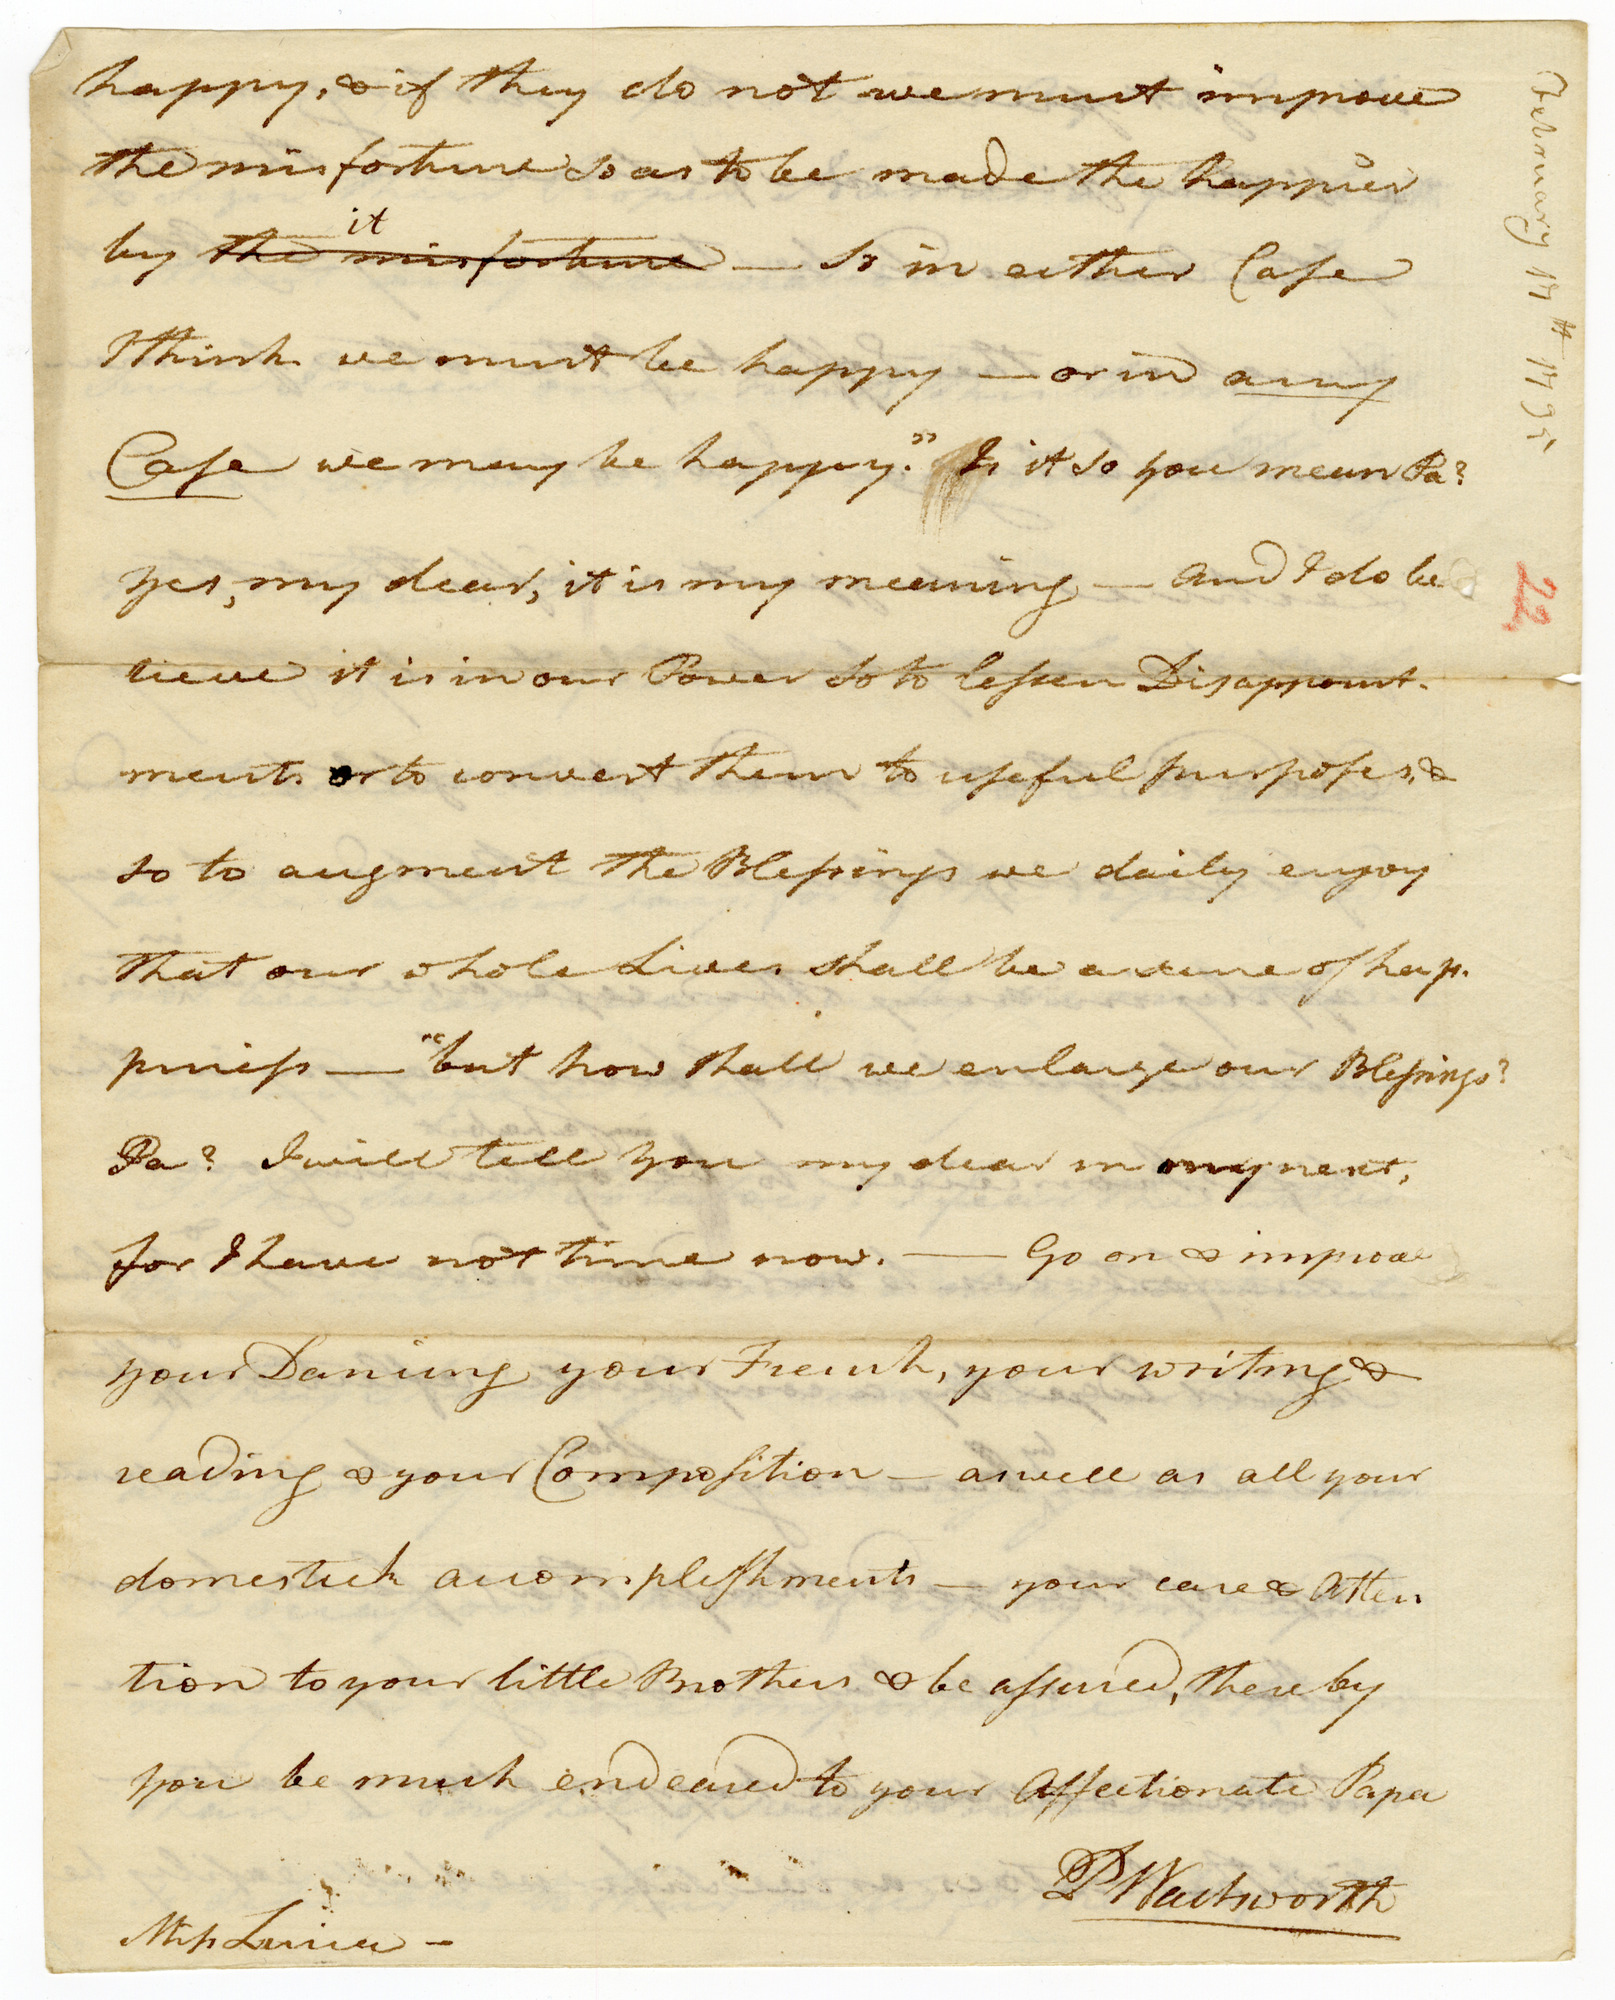 happy, & if they do not we must improve
the misfortune so as to be made the happier
by the misfortune it — So in either Case
I think we must be happy — or in any
Case we may be happy." Is it so you mean Pa?
yes, my dear, it is my meaning — and I do be
lieve it is in our Power so to lessen Disappoint-
ments or to convert them to useful purposes, &
so to augment the Blessings we daily enjoy
that our whole Lives shall be a scene of hap-
piness — "but how shall we enlarge our Blessings?
Pa? I will tell you my dear in my next,
for I have not time now. — Go on & improve
your Dancing your French, your writing &
reading & your Composition — as well as all your
domestick accomplishments — your care & Atten
tion to your little Brothers & be assured, thereby
you be much endeared to your Affectionate Papa
P Wadsworth
Miss Zilpah —
February 17th 1795
22